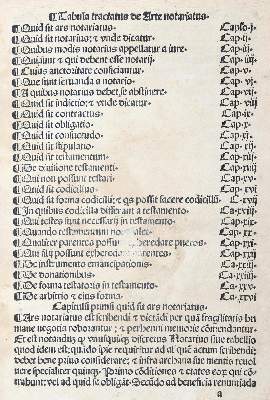 ¶Tabula tractatus de Arte notariatus.
¶Quid sit ars notariatus. Capło.j.
¶Quid sit notarius; & vnde dicatur. Cap.ij.
¶Quibus modis notarius appellatur a iure. Cap.iij.
¶Qui sunt & qui debent esse notarij. Cap.iiij.
¶Cuius auctoritate conficiantur. Cap.v.
¶Que sunt seruanda a notario. Cap.vi.
¶A quibus notarius debet se abstinere. Cap.vij.
¶Quid sit indictio; & vnde dicatur. Cap.viij.
¶Quid sit contractus. Cap.ix.
¶Quid sit obligatio. Cap.x.
¶Quid sit consuetudo. Cap.xi.
¶Quid sit stipulatio. Cap.xij.
¶Quid sit testamentum. Cap.xiij.
¶De diuisione testamenti. Cap.xiiij.
¶Qui non possunt testari. Cap.xv.
¶Quid sit codicillus. Cap.xvi
¶Quid sit forma codicilli; & qs possit facere codicillū. C.xvij
¶In quibus codicilla differant a testamento. Ca.xviij.
¶Qui testes sunt necessarij in testamento. Cap.xix.
¶Quando testamentum non valet. Cap.xx.
¶Qualiter parentes possunt exheredare pueros. Cap.xxi.
¶Qui filij possunt exheredare parentes. Cap.xxij.
¶De instrumento emancipationis. Ca.xxiij.
¶De donationibus. Ca.xxiiij.
¶De forma testatoris in testamento. Ca.xxv.
¶De arbitrio & eius forma. Ca.xxvi
Capitulū primū quid sit ars notariatus.
¶Ars notariatus est scribendi & dictādi per quā fragilitas hu
mane negotia roborantur; & perhenni memorie cōmendantur.
Et est notandū q vnusquisq; discretus Notarius siue tabellio
quod idem est; quādo ipse requiritur ad aliquē actum scribendū
debet bene prius considerare; & infra archana sue mentis reuol
uere specialiter quinq;. Primo conditiones & etates eorum qui cō
trahunt; vel ad quid se obligāt. Secūdo ad beneficia renuncianda
a